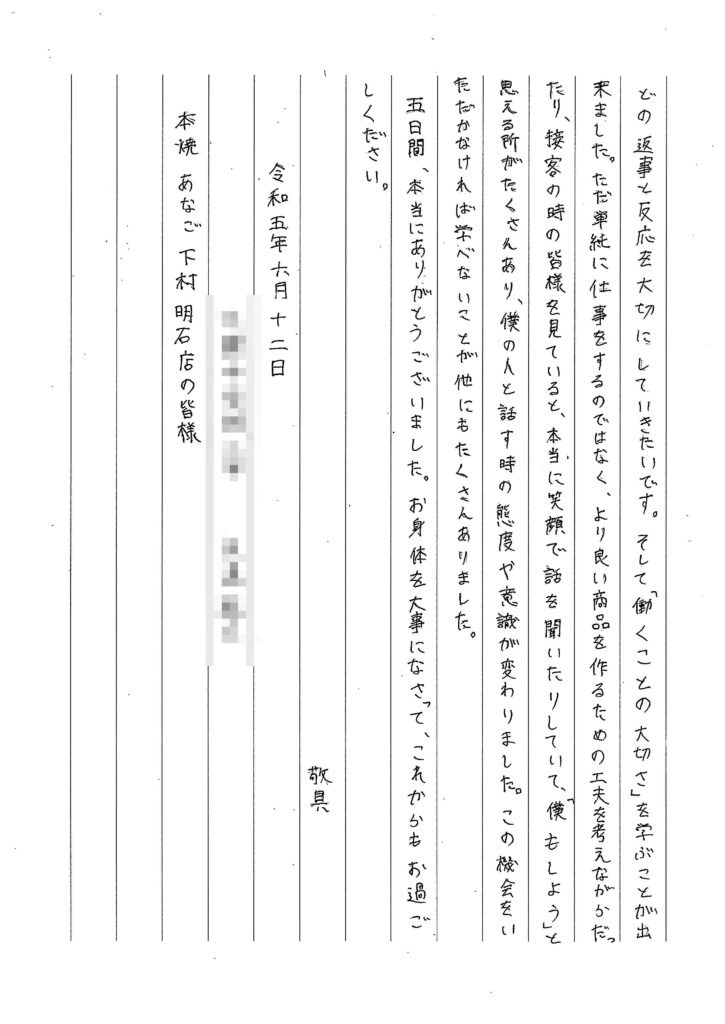 どの返事と反応を大切にしていきたいです。そして「働くことの大切さ」を学ぶことが出
来ました。ただ単純に仕事をするのではなく、より良い商品を作るための工夫を考えながらだっ
たり、接客の時の皆様を見ていると、本当に笑顔で話を聞いたりしていて、「僕もしよう」と
思える所がたくさんあり、僕の人と話す時の態度や意識が変わりました。この機会をい
ただかなければ学べないことが他にもたくさんありました。
五日間、本当にありがとうございました。お身体を大事になさって、これからもお過ご
しください。
敬具
令和五年六月十二日
本焼あなご下村明石店の皆様